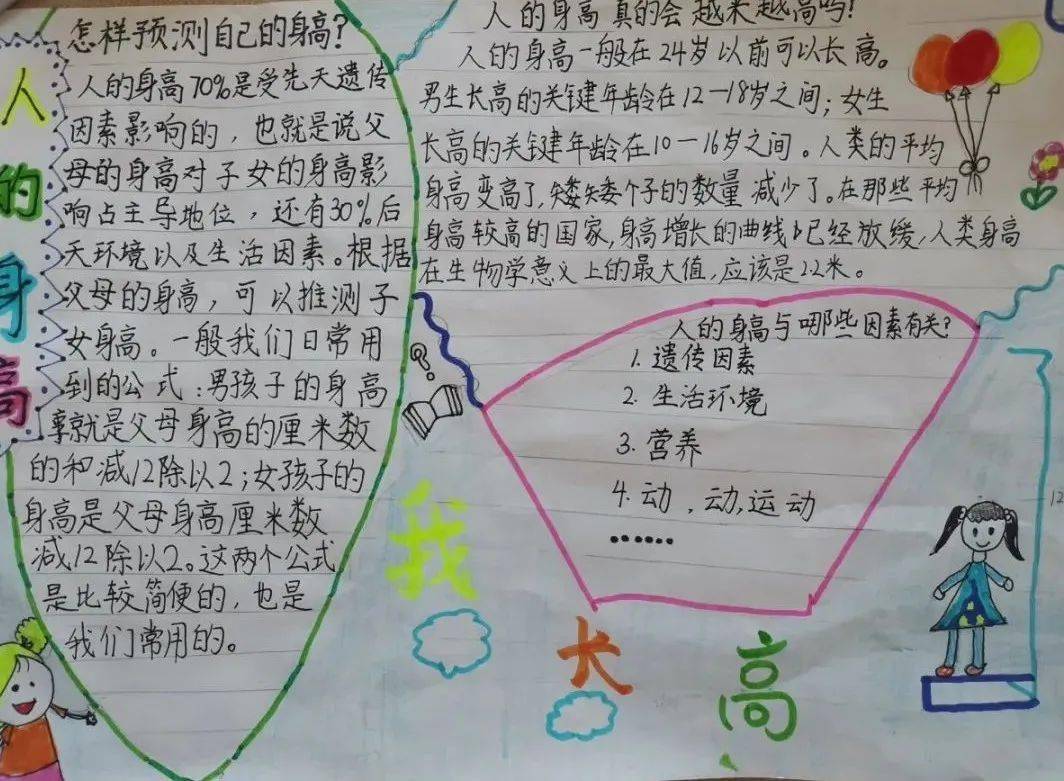 人
的
身
高
怎样预测自己的身高?
人的身高70%是受先天遗传
因素影响的，也就是说父
母的身高对子女的身高影
响占主导地位，还有30%后
天环境以及生活因素。根据
父母的身高，可以推测子
女身高。一般我们日常用
到的公式:男孩子的身高
就是父母身高的厘米数
的和减12除以2;女孩子的
身高是父母身高厘米数
减12除以2。这两个公式
是比较简便的，也是
我们常用的。
人的身高真的会越来越高吗!
人的身高一般在24岁以前可以长高。
男生长高的关键年龄在12一18岁之间;女生
长高的关键年龄在10一16岁之间。人类的平均
身高变高了,矮矮个子的数量减少了。在那些平均
身高较高的国家,身高增长的曲线已经放缓,人类身高
在生物学意义上的最大值,应该是22米。
人的身高与哪些因素有关?
1. 遗传因素
2. 生活环境
3. 营养
4. 动、动,运动
.......
我
长
高
12